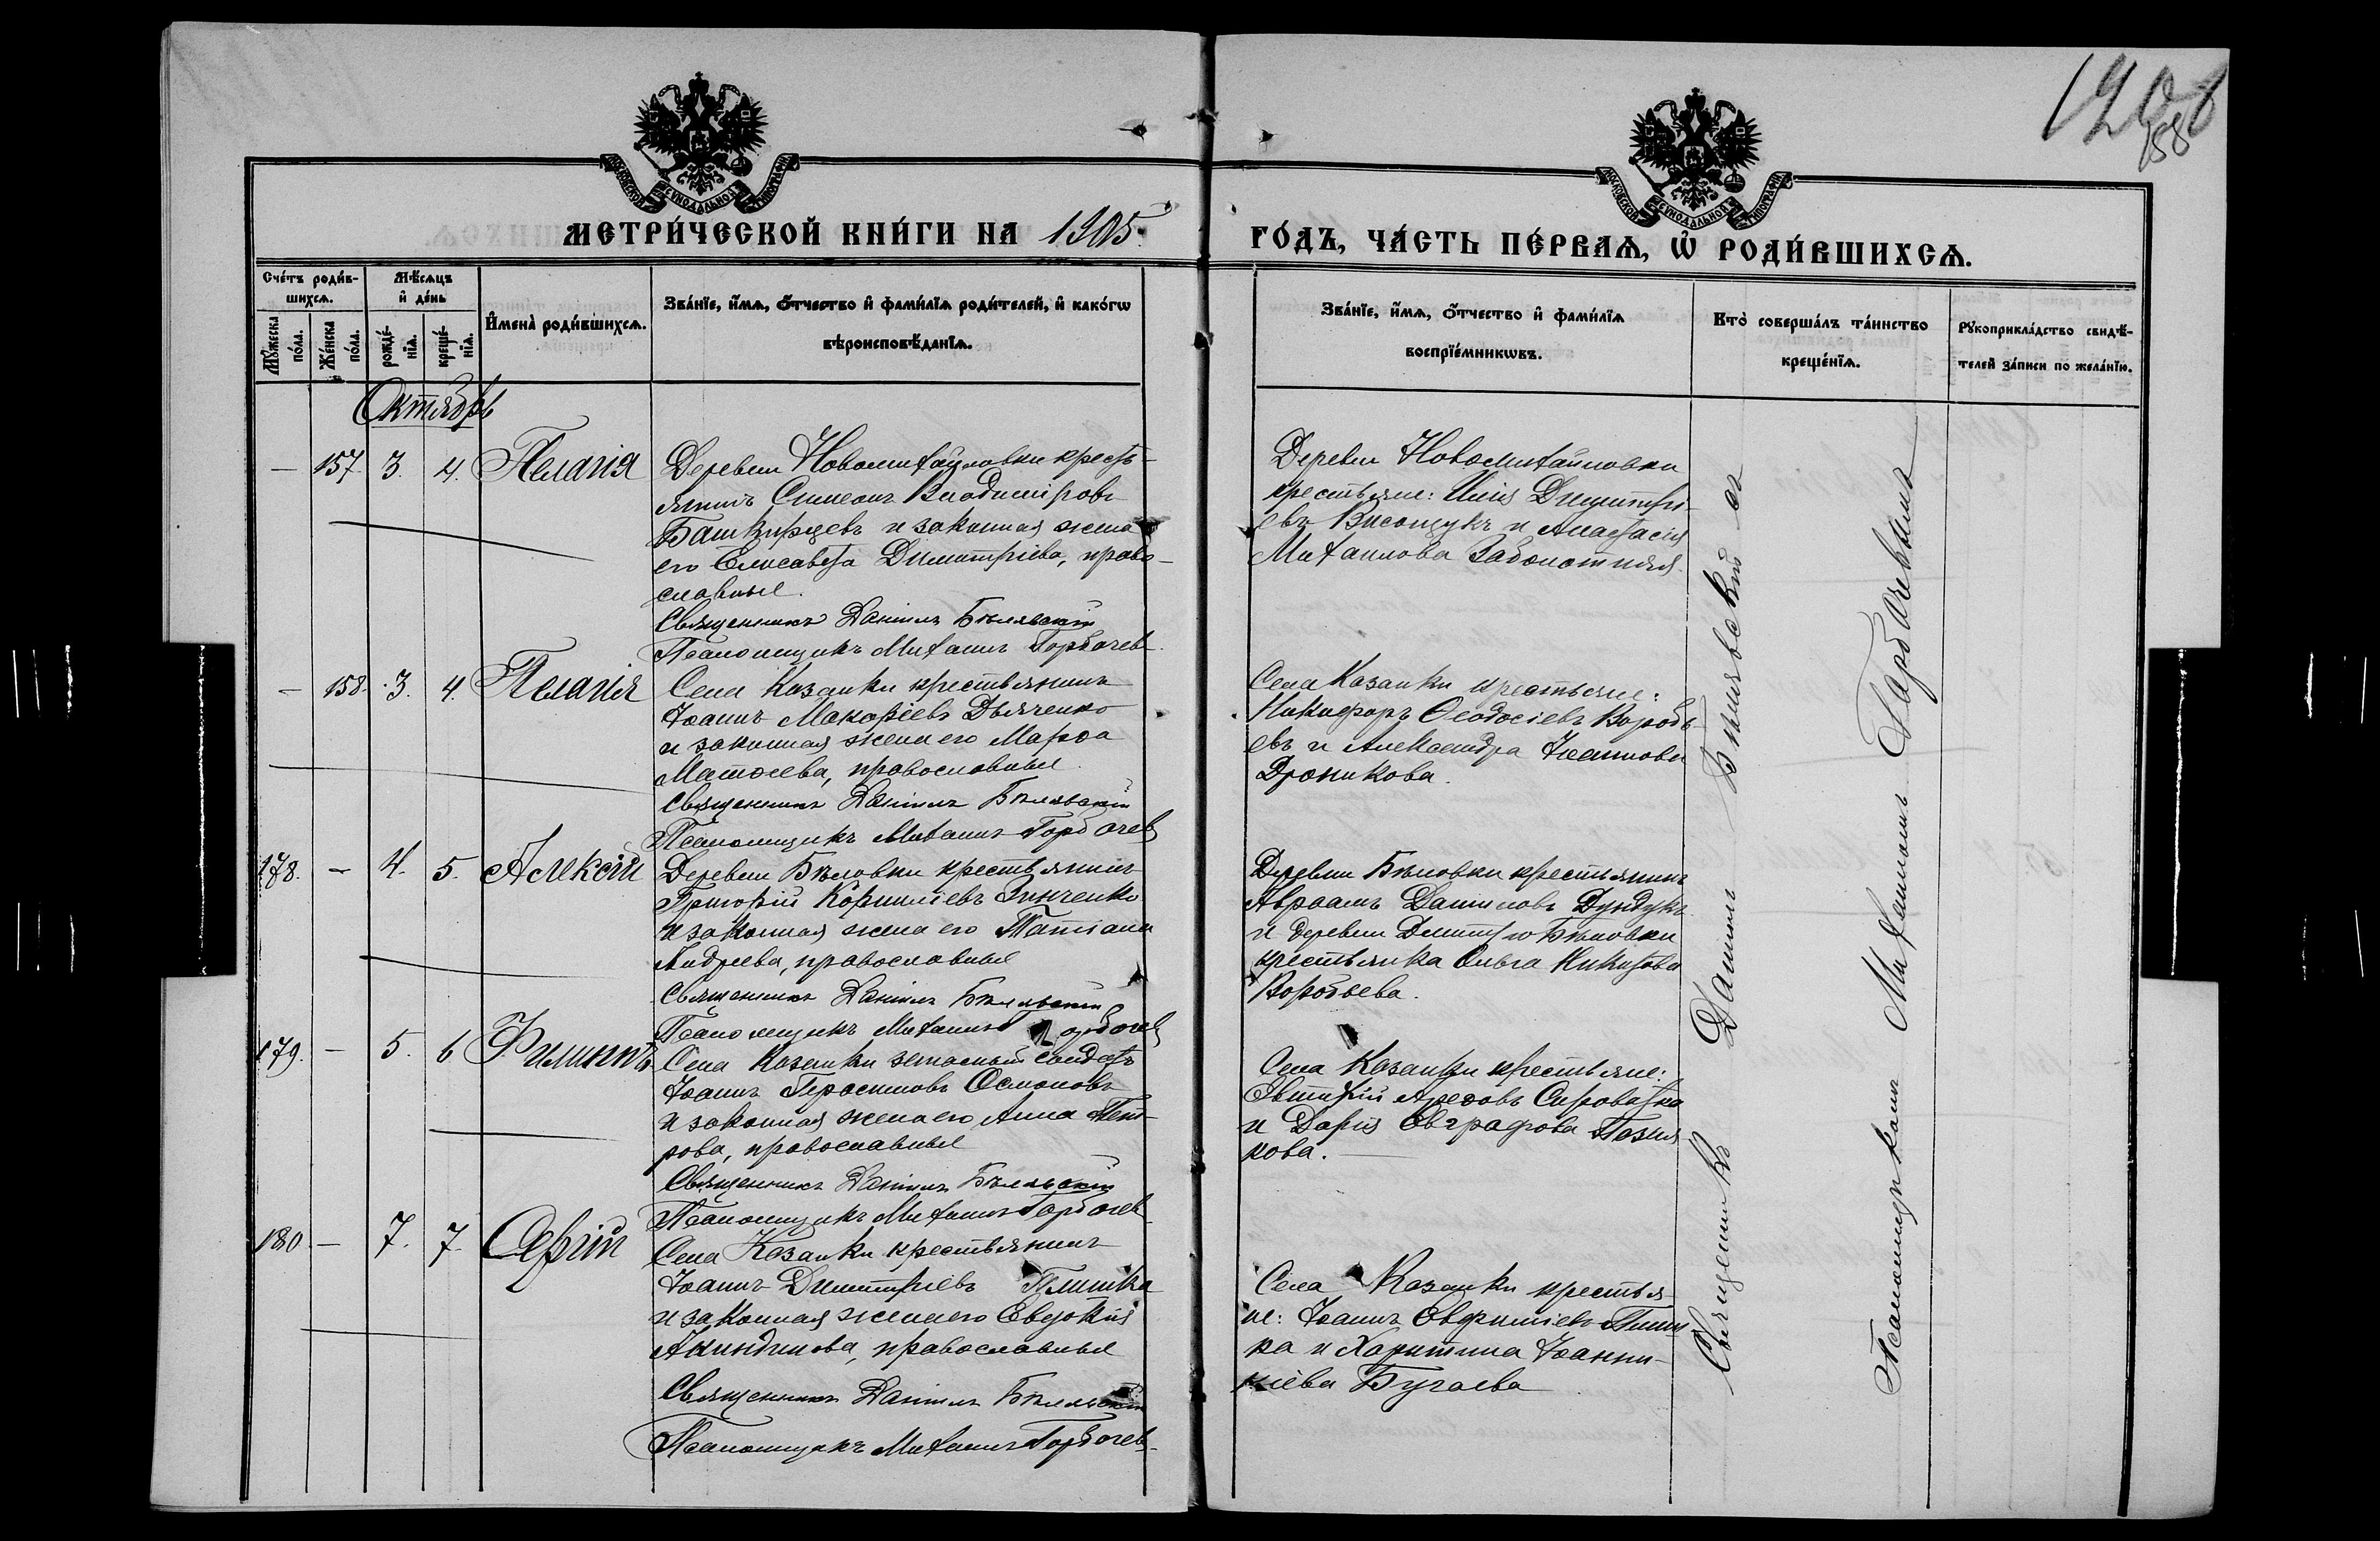 МЕТРИ́ЧЕСКОЙ КНИ́ГИ НА 1905
ГО́ДЪ, ЧА́СТЬ ПЕ́РВАѦ, Ѡ҆ РОДИ́ВШИХСѦ.
МОСКОВСКОЙ СѴНОДАЛЬНОЙ ТИПОГРАФІИ
МОСКОВСКОЙ СѴНОДАЛЬНОЙ ТИПОГРАФІИ
Сче́тъ роди́в-
шихсѧ.
Мꙋ́жеска
по́ла.
Же́нска
по́ла.
Мѣ́сѧцъ
и҆ де́нь
рожде́-
нїѧ.
креще́-
нїѧ.
И҆мена̀ роди́вшихсѧ.
Зва́нїе, и҆́мѧ, ѻ҆́тчество и҆ фами́лїѧ роди́телей, и҆ како́гѡ
вѣроисповѣ́данїѧ.
Зва́нїе, и҆́мѧ, ѻ҆́тчество и҆ фами́лїѧ
воспрїе́мникѡвъ.
Кто̀ соверша́лъ та́инство
креще́нїѧ.
Рꙋкоприкла́дство свидѣ́-
телей за́писи по жела́нїю.
Октябрь
— 157 3. 4. Пелагія
Деревни Новомихайловки кресть-
янинъ Симеонъ Владиміровъ
Башкирцевъ и законная жена
его Елисавета Димитріева, право-
славные.
Священникъ Даніилъ Бѣлявскій
Псаломщикъ Михаилъ Горбачевъ.
Деревни Новомихайловки
крестьяне: Илія Димитрі-
евъ Високицукъ и Анастасія
Михаилова Заболотняя.
— 158. 3. 4. Пелагія
Села Казанки крестьянинъ
Іоаннъ Макаріевъ Дьяченко
и законная жена его Марѳа
Матѳеева, православные.
Священникъ Даніилъ Бѣлявскій
Псаломщикъ Михаилъ Горбачевъ
Села Казанки крестьяне:
Никифоръ Ѳеодосіевъ Воробь-
евъ и Александра Іоаннова
Дроникова.
178. — 4. 5. Алексій
Деревни Бѣловки крестьянинъ
Григорій Корниліевъ Зинченко
и законная жена его Татіана
Андреева, православные
Священникъ Даніилъ Бѣлявскій
Псаломщикъ Михаилъ Горбачевъ
Деревни Бѣловки крестьянинъ
Авраамъ Даниловъ Дундукъ
и деревни Дмитро Бѣловки
крестьянка Ольга Никитова
Воробьева.
179. — 5. 6 Филиппъ
Села Казанки запасный солдатъ
Іоаннъ Герасимовъ Осмоловъ
и законная жена его Анна Пет-
рова, православные
Священникъ Даніилъ Бѣлявскій
Псаломщикъ Михаилъ Горбачевъ
Села Казанки крестьяне:
Евтихій Ареѳовъ Сироватка
и Дарія Евграфова Позня
кова.
180 — 7. 7. Сергій
Села Казанки крестьянинъ
Іоаннъ Димитріевъ Плишка
и законная жена его Евдокія
Акиндинова, православные
Священникъ Даніилъ Бѣлявскій
Псаломщикъ Михаилъ Горбачевъ.
Села Казанки крестья-
не: Іоаннъ Евфиміевъ Плиш
ка и Харитина Іоанни-
кіева Бугаева
Священникъ Даніилъ Бѣлявскій съ
Псаломщикомъ Михаиломъ Горбачевымъ